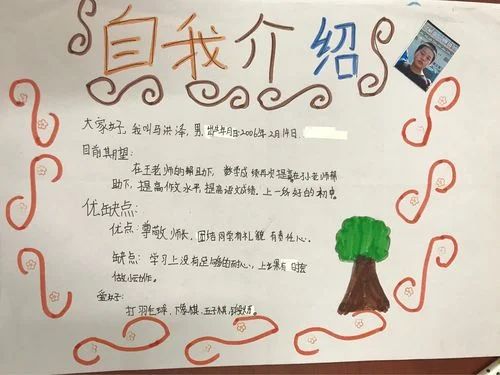 自我介绍
大家好，我叫马洪泽，男，出生年月日2006年2月14日，
自我期望：
在王老师的帮助下，数学成绩再次提高在小老师帮
助下，提高作文水平，提高语文成绩，上一所好的初中。
优缺点：
优点：尊敬师长，团结同学有礼貌有责任心。
缺点：学习上没有足够的耐心，上课有时
做小动作。
爱好：
打羽毛球，下象棋，五子棋，